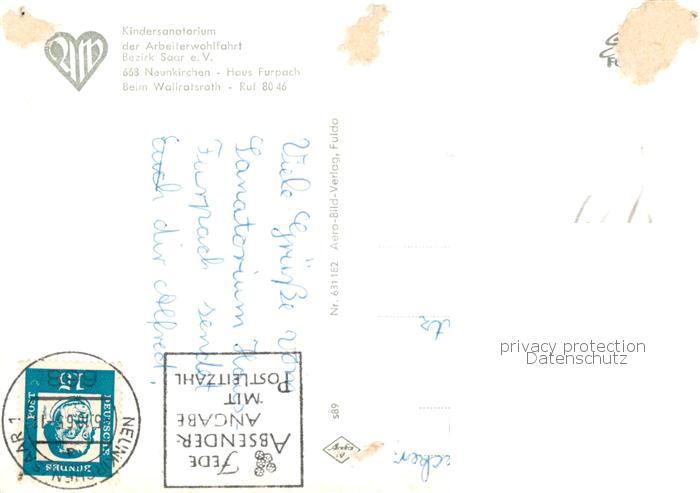 Kindersanatorium
der Arbeiterwohlfahrt
Bezirk Saar e. V.
668 Neunkirchen - Haus Furpach
Beim Wallratsroth - Ruf 80 46
Viele Grüße vom
Sanatorium Haus
Furpach sendet
Euch dir Alfred.
Nr. 631182 Aero-Bild-Verlag, Fulda
s89
privacy protection
Datenschutz
JEDE
ABSENDER-
ANGABE
MIT
POSTLEITZAHL
NEUNKIRCHEN SAAR 1
668
15
DEUTSCHE
BUNDES
POST